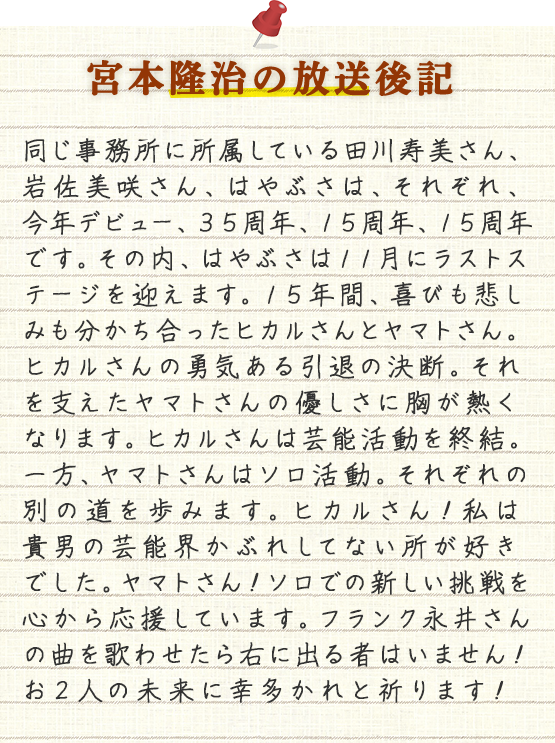 宮本隆治の放送後記
同じ事務所に所属している田川寿美さん、
岩佐美咲さん、はやぶさは、それぞれ、
今年デビュー、３５周年、１５周年、１５周年
です。その内、はやぶさは１１月にラストス
テージを迎えます。１５年間、喜びも悲し
みも分かち合ったヒカルさんとヤマトさん。
ヒカルさんの勇気ある引退の決断。それ
を支えたヤマトさんの優しさに胸が熱く
なります。ヒカルさんは芸能活動を終結。
一方、ヤマトさんはソロ活動。それぞれの
別の道を歩みます。ヒカルさん！私は
貴男の芸能界かぶれしてない所が好き
でした。ヤマトさん！ソロでの新しい挑戦を
心から応援しています。フランク永井さん
の曲を歌わせたら右に出る者はいません！
お２人の未来に幸多かれと祈ります！